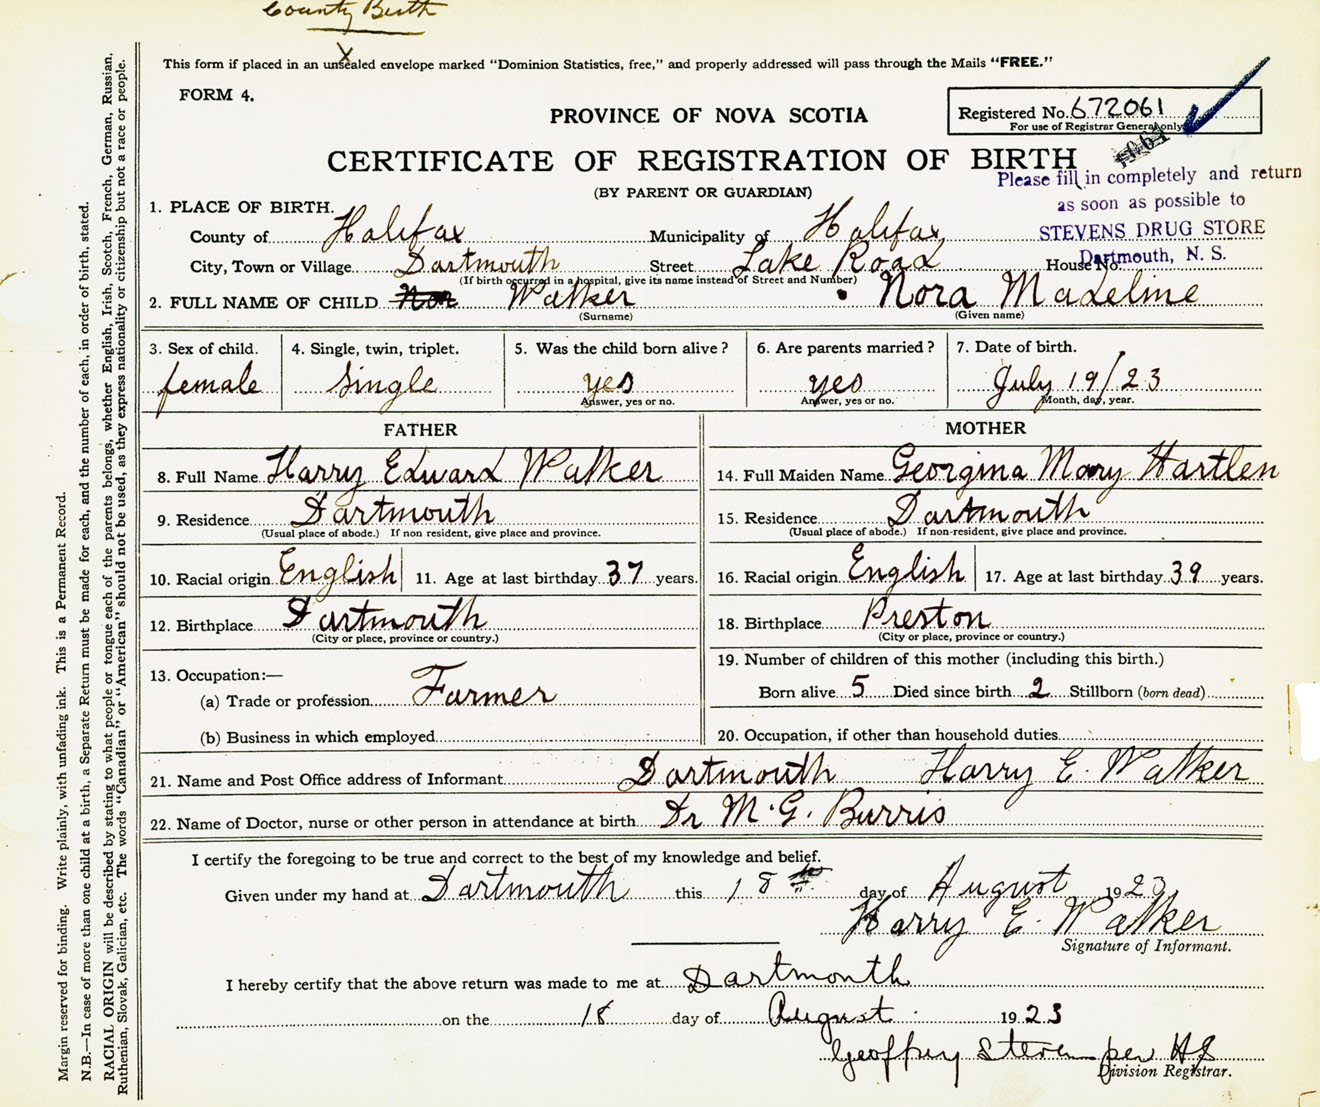 County Birth
This form if placed in an unsealed envelope marked "Dominion Statistics, free," and properly addressed will pass through the Mails "FREE."
FORM 4.
PROVINCE OF NOVA SCOTIA
Registered No. 672061
For use of Registrar General only
CERTIFICATE OF REGISTRATION OF BIRTH
(BY PARENT OR GUARDIAN)
Please fill in completely and return
as soon as possible to
STEVENS DRUG STORE
Dartmouth, N. S.
1. PLACE OF BIRTH.
County of Halifax Municipality of Halifax
City, Town or Village Dartmouth Street Lake Road House No.
(If birth occurred in a hospital, give its name instead of Street and Number)
2. FULL NAME OF CHILD Walker Nora Madeline
(Surname) (Given name)
3. Sex of child. 4. Single, twin, triplet. 5. Was the child born alive? 6. Are parents married? 7. Date of birth.
female Single yes yes July 19/23
Answer, yes or no. Answer, yes or no. Month, day, year.
FATHER MOTHER
8. Full Name Harry Edward Walker 14. Full Maiden Name Georgina Mary Hartlen
9. Residence Dartmouth 15. Residence Dartmouth
(Usual place of abode.) If non resident, give place and province. (Usual place of abode.) If non-resident, give place and province.
10. Racial origin English 11. Age at last birthday 37 years. 16. Racial origin English 17. Age at last birthday 39 years.
12. Birthplace Dartmouth 18. Birthplace Preston
(City or place, province or country.) (City or place, province or country.)
13. Occupation:— 19. Number of children of this mother (including this birth.)
(a) Trade or profession Farmer Born alive 5 Died since birth 2 Stillborn (born dead)
(b) Business in which employed 20. Occupation, if other than household duties
21. Name and Post Office address of Informant Dartmouth Harry E. Walker
22. Name of Doctor, nurse or other person in attendance at birth Dr M. G. Burris
I certify the foregoing to be true and correct to the best of my knowledge and belief.
Given under my hand at Dartmouth this 18th day of August 1923
Harry E. Walker
Signature of Informant.
I hereby certify that the above return was made to me at Dartmouth
on the 18 day of August 1923
Geoffrey Stevens per HS
Division Registrar.
Margin reserved for binding. Write plainly, with unfading ink. This is a Permanent Record.
N.B.—In case of more than one child at a birth, a Separate Return must be made for each, and the number of each, in order of birth, stated.
RACIAL ORIGIN will be described by stating to what people or tongue each of the parents belongs, whether English, Irish, Scotch, French, German, Russian,
Ruthenian, Slovak, Galician, etc. The words "Canadian" or "American" should not be used, as they express nationality or citizenship but not a race or people.